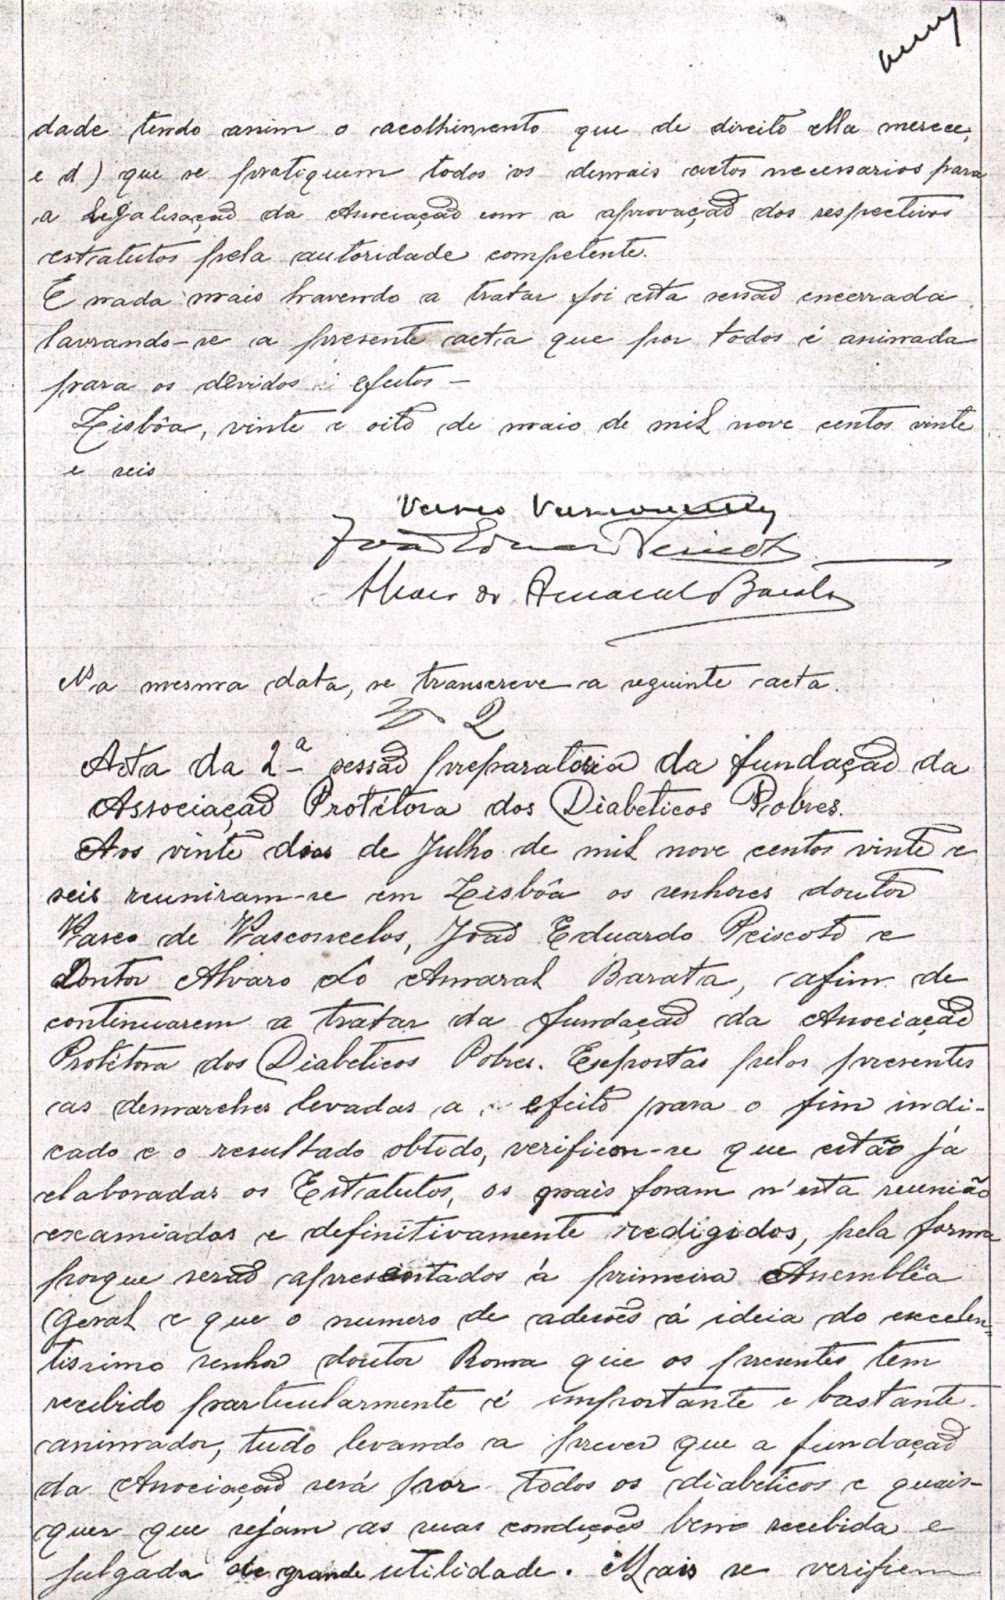 dade tendo assim o acolhimento que de direito ella merece,
e d) que se pratiquem todos os demais actos necessarios para
a legalisação da Associação com a aprovação dos respectivos
estatutos pela autoridade competente.
E nada mais havendo a tratar foi esta sessão encerrada
lavrando-se a presente acta que por todos é assinada
para os devidos efeitos -
Lisbôa, vinte e oito de maio de mil nove centos vinte
e seis
Vasco Vasconcellos
João Eduardo Peixoto
Alvaro do Amaral Barata
Na mesma data, se transcreve a seguinte acta.
Nº 2
Acta da 2ª sessão preparatória da fundação da
Associação Protétora dos Diabeticos Pobres.
Aos vinte dias de Julho de mil nove centos vinte e
seis reuniram-se em Lisbôa os senhores doutor
Vasco de Vasconcelos, João Eduardo Peiscoto e
Doutor Alvaro do Amaral Barata, afim de
continuarem a tratar da fundação da Associação
Protétora dos Diabeticos Pobres. Expostas pelos presentes
as demarches levadas a efeito para o fim indi-
cado e o resultado obtido, verificou-se que estão já
elaborados os Estatutos, os quais foram n'esta reunião
examiados e definitivamente redigidos, pela forma
porque serão apresentados á primeira Assembleia
Geral e que o numero de adesões á ideia do excelen-
tissimo senhor doutor Roma que os presentes tem
recebido particularmente é importante e bastante
animador, tudo levando a prever que a fundação
da Associação será por todos os diabeticos e quais-
quer que sejam as suas condições bem recebida e
julgada de grande utilidade. Mais se verificou